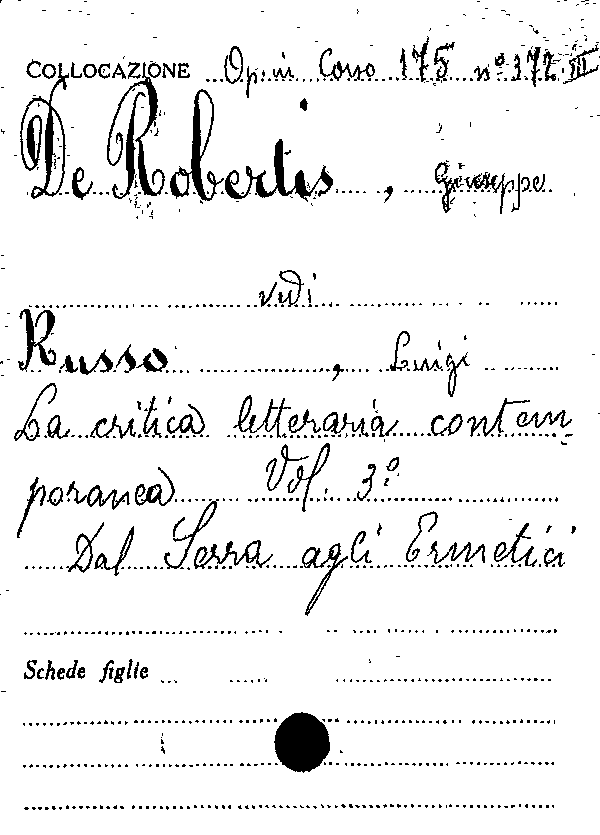 COLLOCAZIONE Op. in Corso 175 nº 372 III
De Robertis, Giuseppe
vedi
Russo, Luigi
La critica letteraria contem-
poranea Vol. 3º
Dal Serra agli Ermetici
Schede figlie